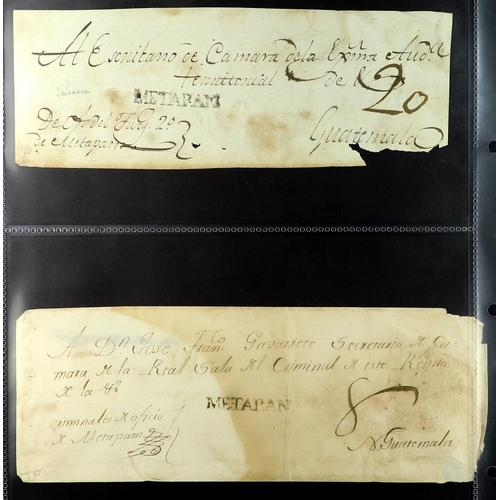 Al Escrivano de Camara de la Exma Auda
territorial de
20
METAPAM
De of. del
de Metapam
Guatemala
A Dn Jose Franco Gavarrete Secretario de Ca-
mara de la Real Sala del Criminal de este Reyno
de la
METAPAN
8
criminales de oficio
de Metapam
Guatemala